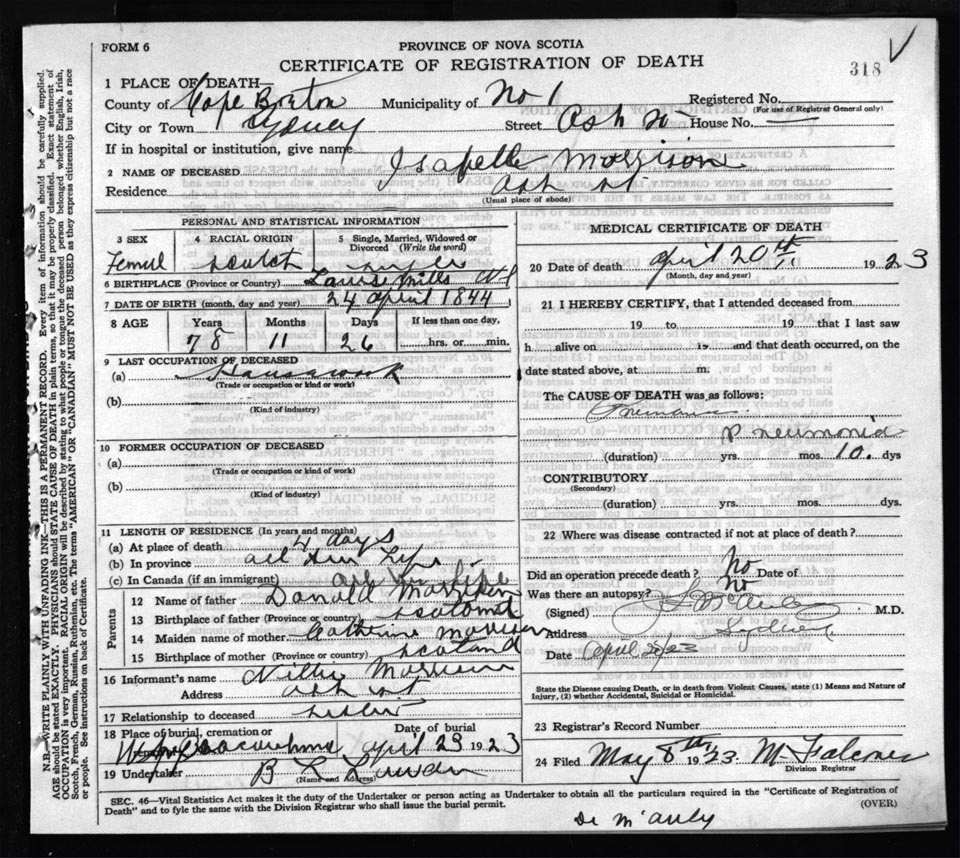 FORM 6
PROVINCE OF NOVA SCOTIA
CERTIFICATE OF REGISTRATION OF DEATH
318
1 PLACE OF DEATH—
County of Cape Breton Municipality of No 1 Registered No.
(For use of Registrar General only)
City or Town Sydney Street Ash House No.
If in hospital or institution, give name
2 NAME OF DECEASED Isabelle Morrison
Residence Ash st
(Usual place of abode)
PERSONAL AND STATISTICAL INFORMATION
3 SEX 4 RACIAL ORIGIN 5 Single, Married, Widowed or Divorced (Write the word)
scutch
6 BIRTHPLACE (Province or Country)
7 DATE OF BIRTH (month, day and year) 24 april 1844
8 AGE Years Months Days If less than one day,
78 11 26 hrs. or min.
9 LAST OCCUPATION OF DECEASED
(a)
(Trade or occupation or kind or work)
(b)
(Kind of industry)
10 FORMER OCCUPATION OF DECEASED
(a)
(Trade or occupation or kind of work)
(b)
(Kind of industry)
11 LENGTH OF RESIDENCE (In years and months)
(a) At place of death days
(b) In province all
(c) In Canada (if an immigrant) all
Parents
12 Name of father Donald Morrison
13 Birthplace of father (Province or country)
14 Maiden name of mother Catherine Morrison
15 Birthplace of mother (Province or country) Scotland
16 Informant's name Morrison
Address Ash st
17 Relationship to deceased
18 Place of burial, cremation or Date of burial
april 23 1923
19 Undertaker B L
(Name and Address)
MEDICAL CERTIFICATE OF DEATH
20 Date of death april 20th 1923
(Month, day and year)
21 I HEREBY CERTIFY, that I attended deceased from
19 to 19 that I last saw
h alive on 19 and that death occurred, on the
date stated above, at m.
The CAUSE OF DEATH was as follows:
Pneumonia
(duration) yrs. mos. 10 dys
CONTRIBUTORY
(Secondary)
(duration) yrs. mos. dys.
22 Where was disease contracted if not at place of death?
Did an operation precede death? No Date of
Was there an autopsy? No
(Signed) M.D.
Address Sydney
Date April /23
State the Disease causing Death, or in death from Violent Causes, state (1) Means and Nature of
Injury, (2) whether Accidental, Suicidal or Homicidal.
23 Registrar's Record Number
24 Filed May 8th 1923
Division Registrar
SEC. 46—Vital Statistics Act makes it the duty of the Undertaker or person acting as Undertaker to obtain all the particulars required in the "Certificate of Registration of
Death" and to fyle the same with the Division Registrar who shall issue the burial permit.
(OVER)
N.B.—WRITE PLAINLY WITH UNFADING INK—THIS IS A PERMANENT RECORD. Every item of information should be carefully supplied.
AGE should be stated EXACTLY. PHYSICIANS should STATE CAUSE OF DEATH in plain terms, so that it may be properly classified. Exact statement of
OCCUPATION is very important. RACIAL ORIGIN will be described by stating to what people or tongue the deceased person belonged whether English, Irish,
Scotch, French, German, Russian, Ruthenian, etc. The terms "AMERICAN" OR "CANADIAN" MUST NOT BE USED as they express citizenship but not a race
or people. See instructions on back of Certificate.